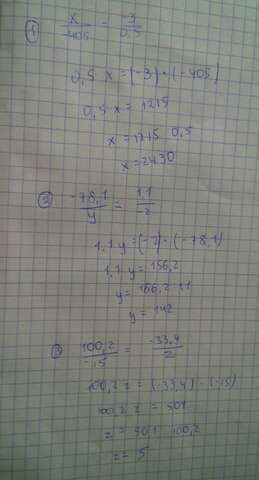 ① x/-405 = -3/0,5
0,5 x = (-3) · (-405)
0,5 x = 1215
x = 1215 : 0,5
x = 2430
② -78,1/y = 1,1/-2
1,1 y = (-2) · (-78,1)
1,1 y = 156,2
y = 156,2 : 1,1
y = 142
③ 100,2/-15 = -33,4/z
100,2 z = (-33,4) · (-15)
100,2 z = 501
z = 501 : 100,2
z = 5